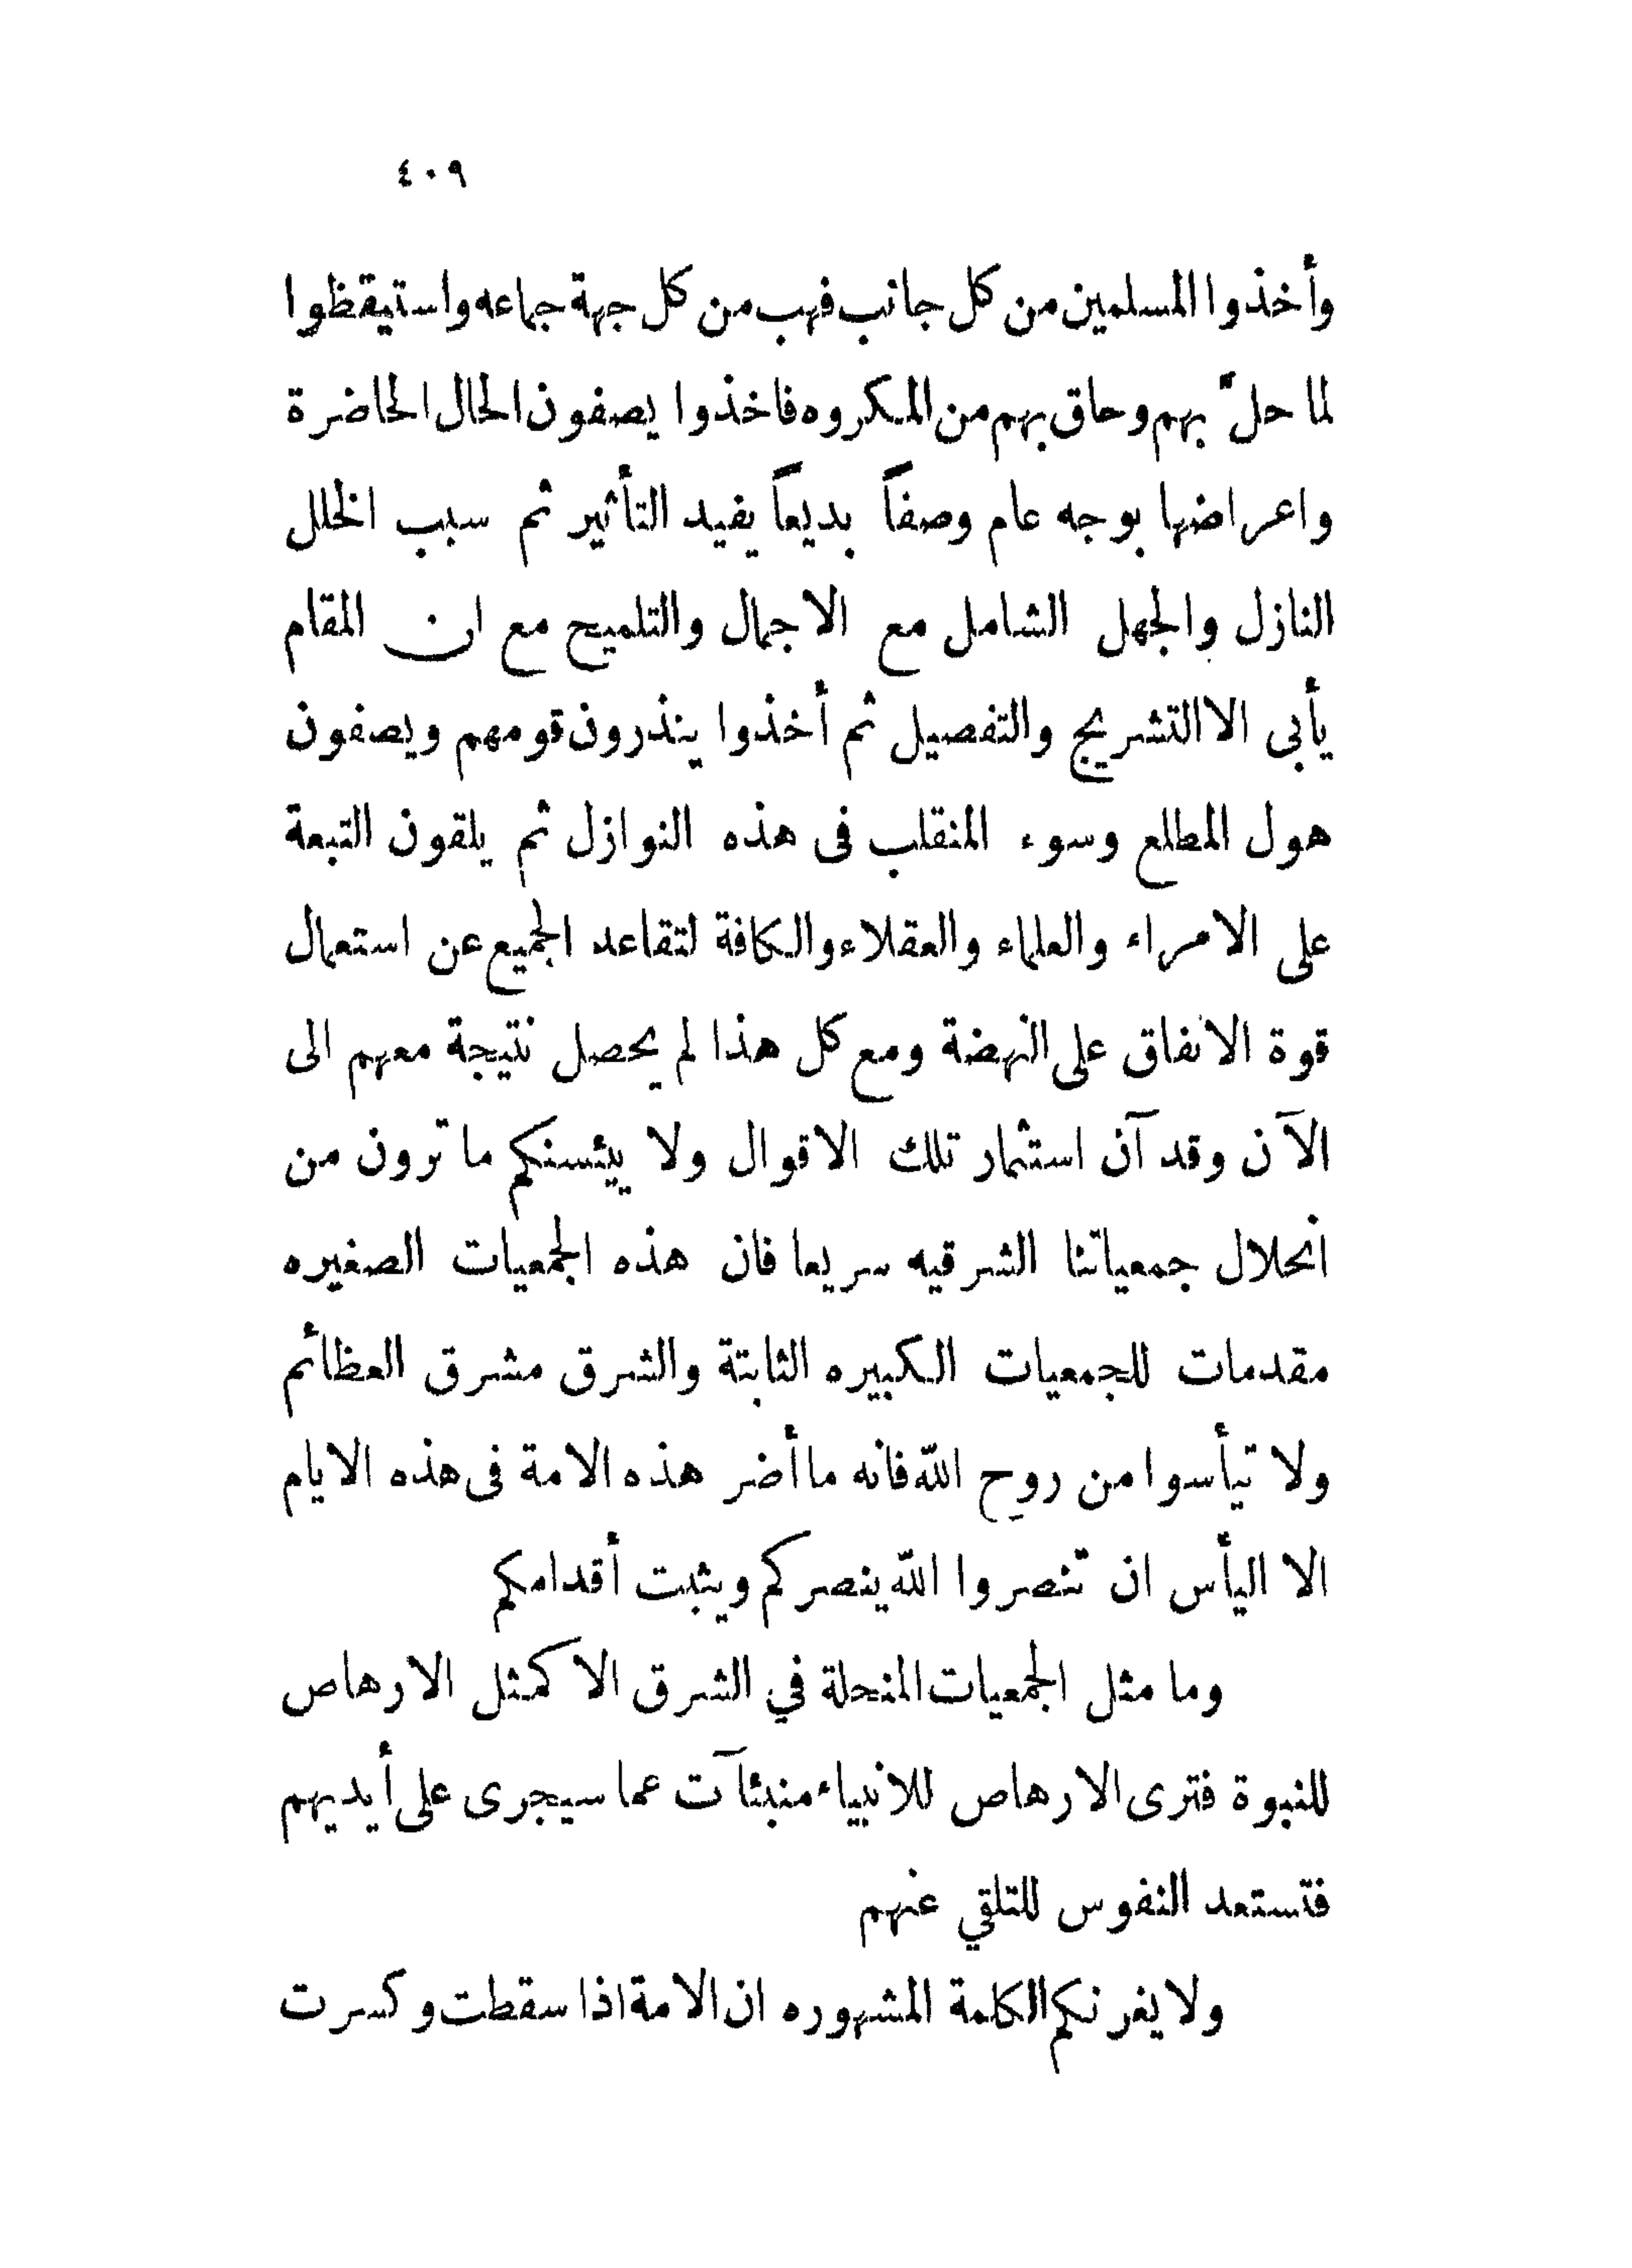 ٤٠٩
وأخذوا المسلمين من كل جانب فهب من كل جهة جماعه واستيقظوا
لما حلّ بهم وحاق بهم من المكروه فاخذوا يصفون الحال الحاضرة
واعراضها بوجه عام وصفاً بديعاً يفيد التأثير ثم سبب الخلل
النازل والجهل الشامل مع الاجمال والتلميح مع ان المقام
يأبى الا التشريح والتفصيل ثم أخذوا ينذرون قومهم ويصفون
هول المطلع وسوء المنقلب فى هذه النوازل ثم يلقون التبعة
على الامراء والعلماء والعقلاء والكافة لتقاعد الجميع عن استعمال
قوة الانفاق على النهضة ومع كل هذا لم يحصل نتيجة معهم الى
الآن وقد آن استثمار تلك الاقوال ولا ييئسنكم ما ترون من
انحلال جمعياتنا الشرقيه سريعا فان هذه الجمعيات الصغيره
مقدمات للجمعيات الكبيره الثابتة والشرق مشرق العظائم
ولا تيأسوا من روح اللّه فانه ما أضر هذه الامة فى هذه الايام
الا اليأس ان تنصروا اللّه ينصركم ويثبت أقدامكم
وما مثل الجمعيات المنحلة في الشرق الا كمثل الارهاص
للنبوة فترى الارهاص للانبياء منبئآت عما سيجرى على أيديهم
فتستعد النفوس للتلقي عنهم
ولا يغرنكم الكلمة المشهوره ان الامة اذا سقطت وكسرت